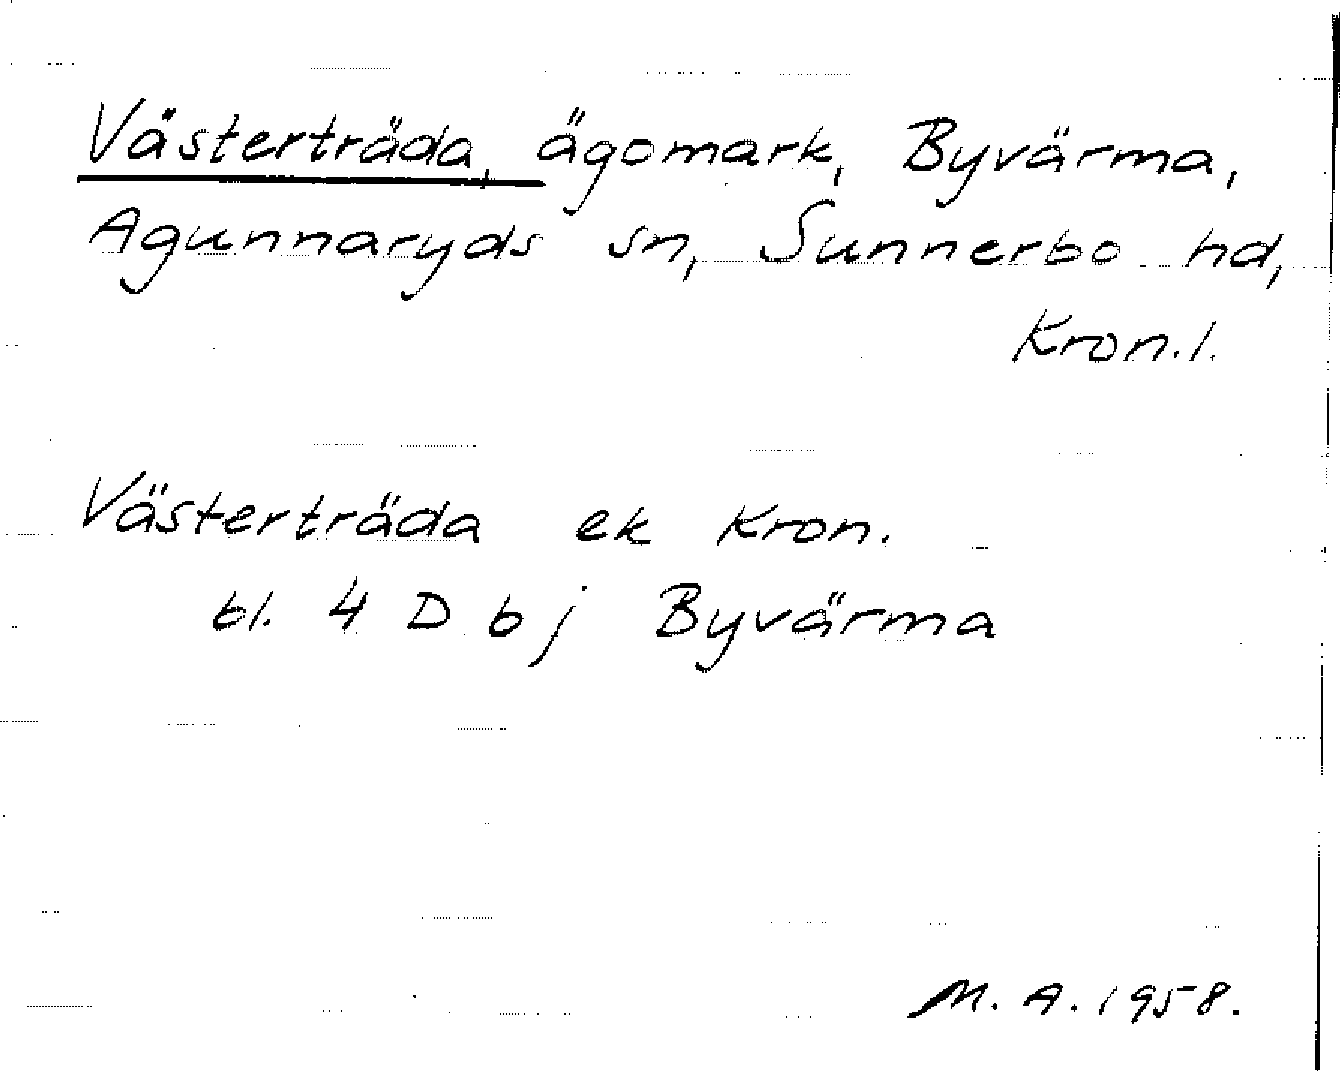 Västerträda, ägomark, Byvärma,
Agunnaryds sn, Sunnerbo hd,
Kron.l.
Västerträda ek Kron.
bl. 4 D b j Byvärma
M. A. 1958.